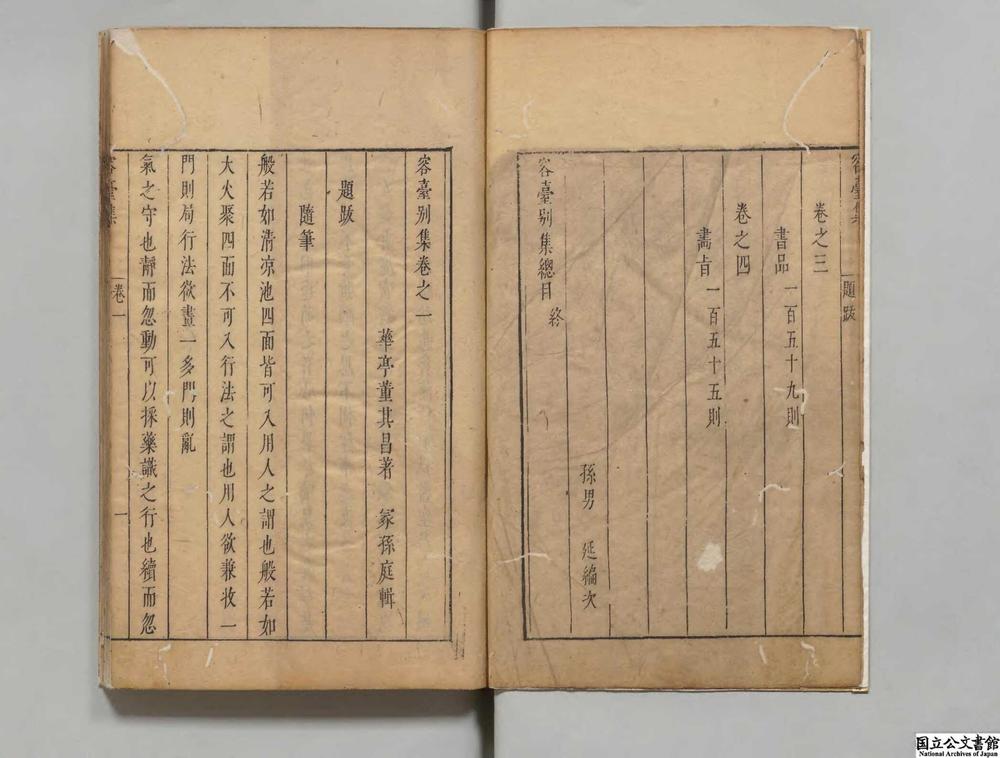 容臺集
題跋
卷之三
書品一百五十九則
卷之四
畫旨一百五十五則
孫男 延編次
容臺别集總目 終
容臺别集卷之一
華亭董其昌著 冢孫庭輯
題跋
隨筆
般若如清凉池四面皆可入用人之謂也般若如
大火聚四面不可入行法之謂也用人欲兼收一
門則局行法欲畫一多門則亂
氣之守也靜而忽動可以採藥識之行也續而忽
容臺集
卷一
一
国立公文書館
National Archives of Japan